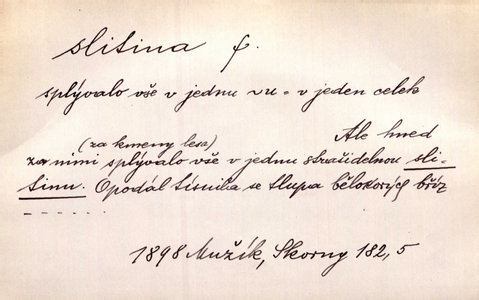 slitina f.
splývalo vše v jednu vu = v jeden celek
Ale hned
(za kmeny lesa)
za nimi splývalo vše v jednu strašidelnou sli-
tinu. Opodál tísnila se tlupa bělokorých bříz
- - - - - -
1898 Mužík, Skorny 182,5